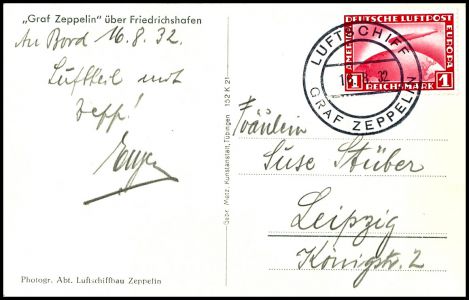 „Graf Zeppelin" über Friedrichshafen
An Bord 16.8.32.
Luftheil mit
Zepp!
Photogr. Abt. Luftschiffbau Zeppelin
Gebr. Metz, Kunstanstalt, Tübingen 152 K 21
LUFTSCHIFF
16.8.32
GRAF ZEPPELIN
DEUTSCHE LUFTPOST
AMERIKA
EUROPA
1 REICHSMARK 1
Fräulein
Suse Stüber
Leipzig
Königstr. 2